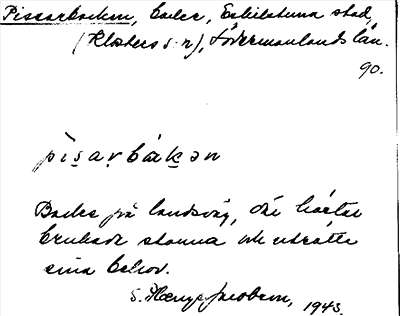 Pissarbacken, backe, Eskilstuna stad,
(Klosters s:n), Södermanlands län.
90.
pìsarbákən
Backe på landsväg, där hästar
brukade stanna och uträtta
sina behov.
S. Jacobson, 1943.